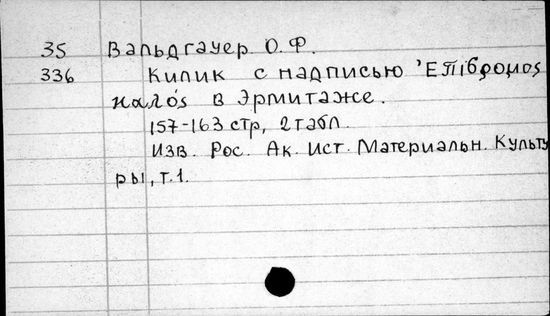 35 Вальдгауер О.Ф.
336 Килик с надписью 'Επίδρομος
καλός в Эрмитаже.
157-163 стр, 2 табл.
Изв. Рос. Ак. Ист. Материальн. Культу
ры, т.1.